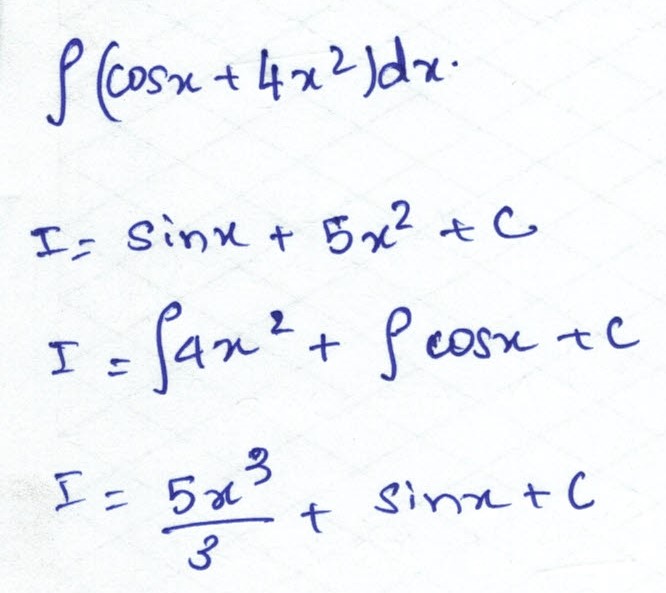 ∫(cosx + 4x²)dx.
I = sinx + 5x² + C
I = ∫4x² + ∫cosx + C
I = 5x³/3 + sinx + C